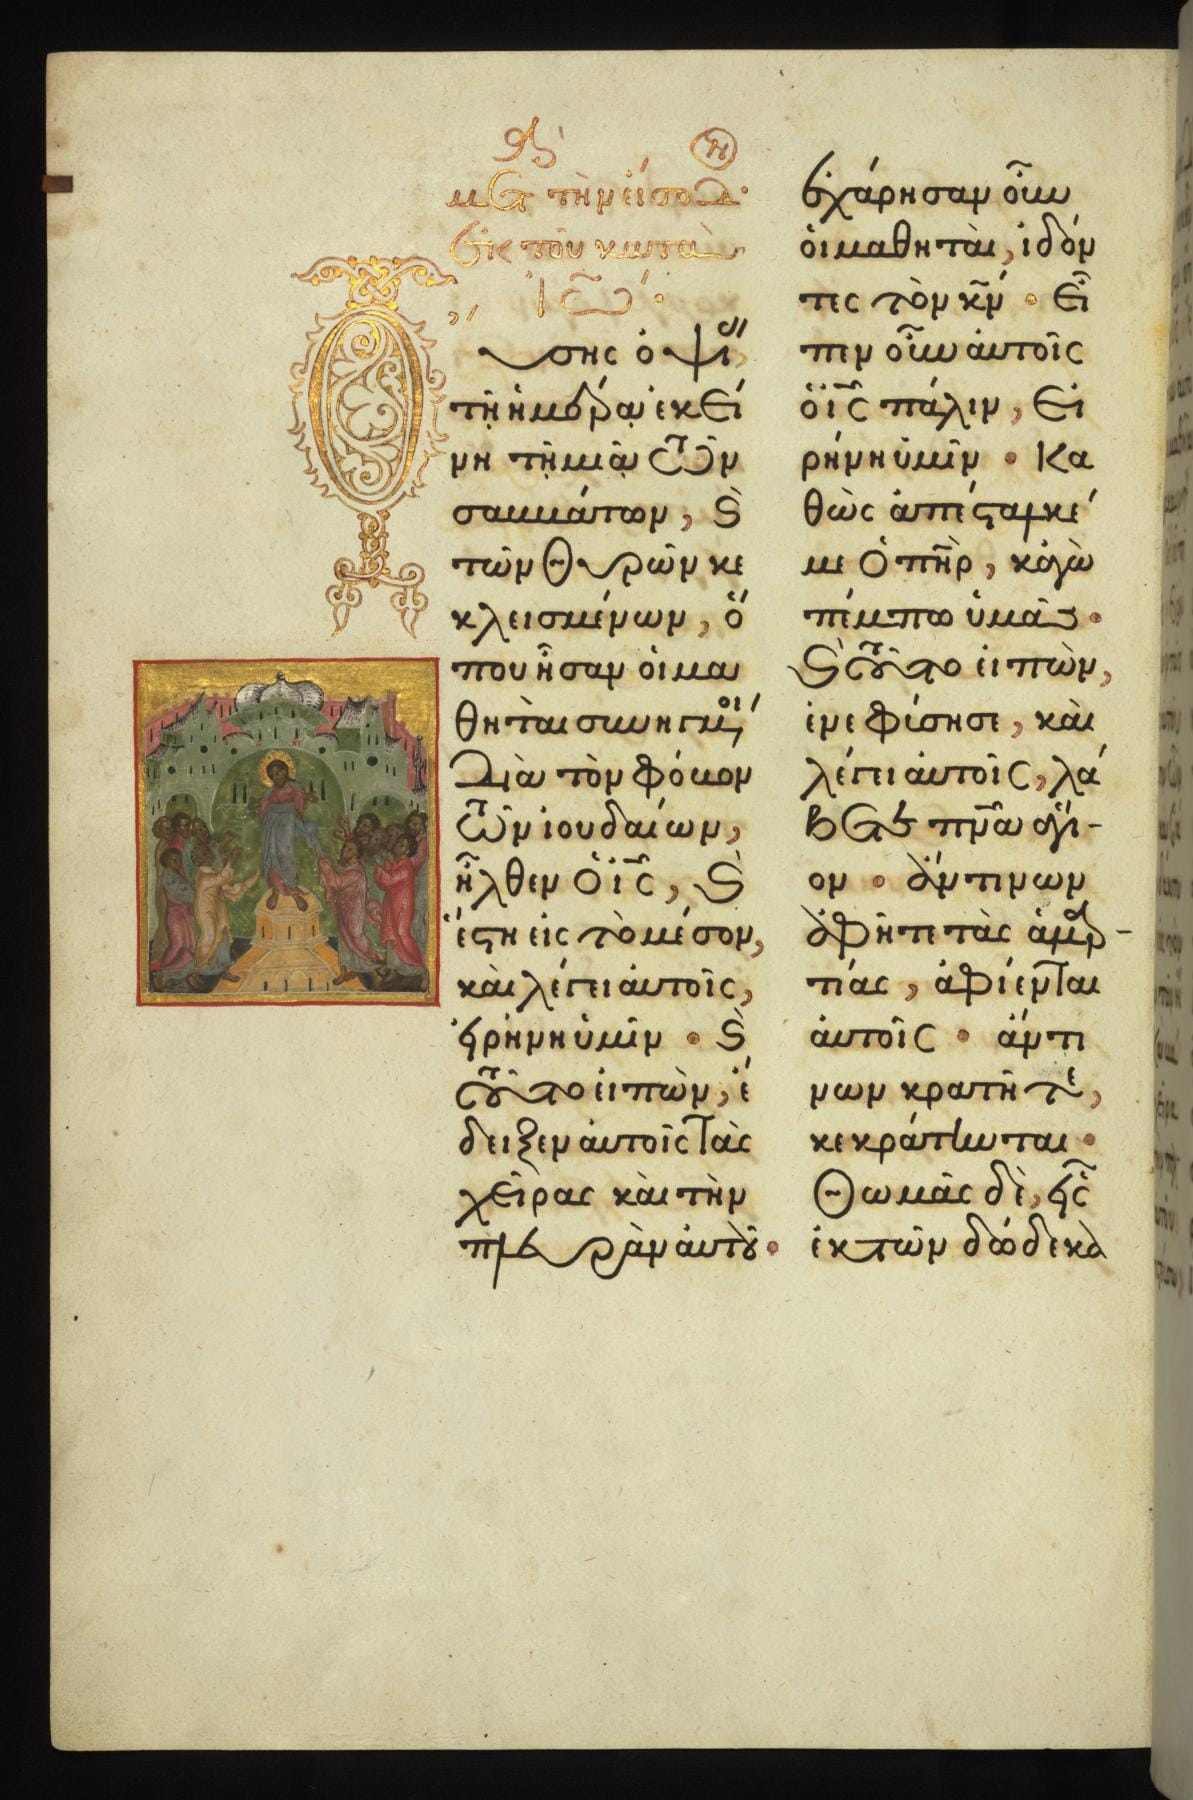 μετ τὴν εἴσοδ·
Ἐκ τοῦ κατὰ
Ἰω·
Οὔσης ὀψί
τῇ ἡμέρᾳ ἐκεί
νη τῇ μιᾷ τῶν
σαββάτων, καὶ
τῶν θυρῶν κε
κλεισμένων, ὅ
που ἦσαν οἱ μα
θηταὶ συνηγμοί
διὰ τὸν φόβον
τῶν ἰουδαίων,
ἦλθεν ὁ ις, καὶ
ἔστη εἰς τὸ μέσον,
καὶ λέγει αὐτοῖς,
εἰρήνη ὑμῖν · καὶ
τοῦτο εἰπὼν, ἔ
δειξεν αὐτοῖς τὰς
χεῖρας καὶ τὴν
πλευρὰν αὐτοῦ ·
ἐχάρησαν οὖν
οἱ μαθηταὶ, ἰδόν
τες τὸν κν · Εἶ
πεν οὖν αὐτοῖς
ὁ ις πάλιν, Εἰ
ρήνη ὑμῖν · Κα
θὼς ἀπέσταλκέ
με ὁ πηρ, κἀγὼ
πέμπω ὑμᾶς ·
καὶ τοῦτο εἰπὼν,
ἐνεφύσησε, καὶ
λέγει αὐτοῖς, λά
βετε πνα ἅγι-
ον · ἄν τινων
ἀφῆτε τὰς ἁμαρ-
τίας, ἀφίενται
αὐτοῖς · ἄν τι
νων κρατῆτε,
κεκράτηνται ·
Θωμᾶς δὲ, εἷς
ἐκ τῶν δώδεκα